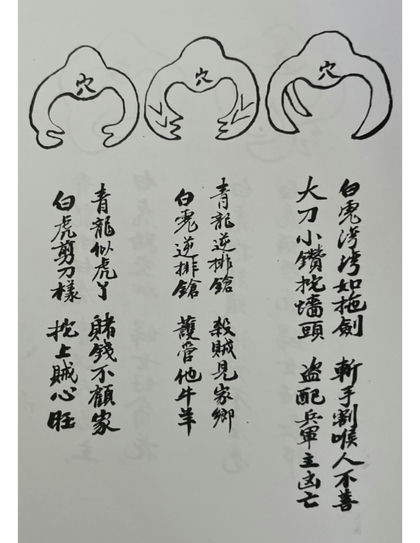 穴
穴
穴
白虎湾湾如拖劍 斬手割喉人不善
大刀小鑽挖墻頭 盗配兵軍主凶亡
青龍逆排鎗 殺賊見家鄉
白虎逆排鎗 護管他牛羊
青龍似虎丫 賭錢不顧家
白虎剪刀樣 上賊心旺